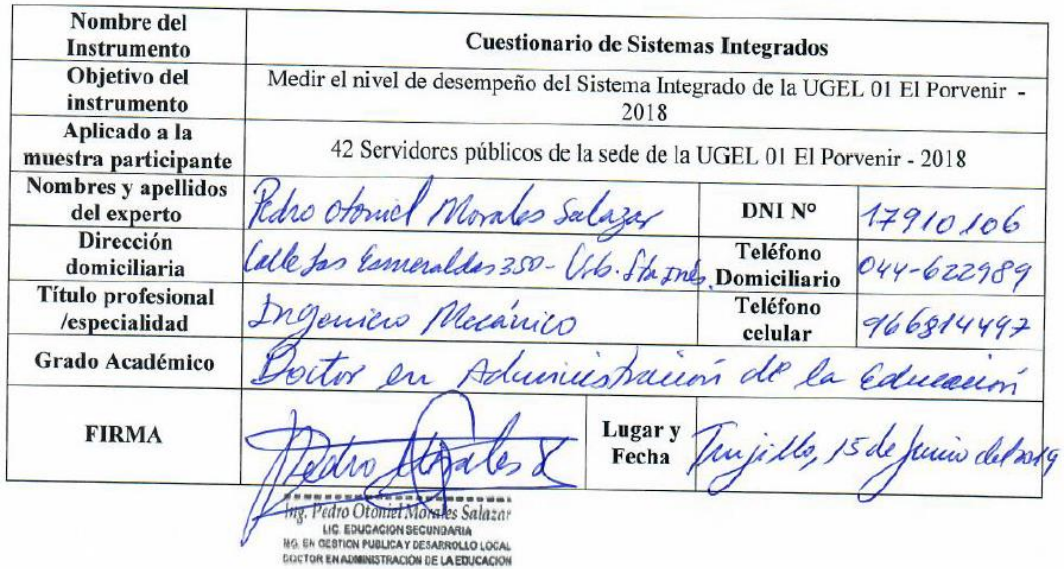 Nombre del
Instrumento
Cuestionario de Sistemas Integrados
Objetivo del
instrumento
Medir el nivel de desempeño del Sistema Integrado de la UGEL 01 El Porvenir -
2018
Aplicado a la
muestra participante
42 Servidores públicos de la sede de la UGEL 01 El Porvenir - 2018
Nombres y apellidos
del experto
Pedro Otoniel Morales Salazar
DNI N°
17910106
Dirección
domiciliaria
Calle Las Esmeraldas 350 - Urb. Sta Inés.
Teléfono
Domiciliario
044-622989
Título profesional
/especialidad
Ingeniero Mecánico
Teléfono
celular
966814497
Grado Académico
Doctor en Administración de la Educación
FIRMA
Pedro Morales S
Lugar y
Fecha
Trujillo, 15 de Junio del 2019
Ing. Pedro Otoniel Morales Salazar
LIC. EDUCACION SECUNDARIA
MG. EN GESTION PUBLICA Y DESARROLLO LOCAL
DOCTOR EN ADMINISTRACIÓN DE LA EDUCACION